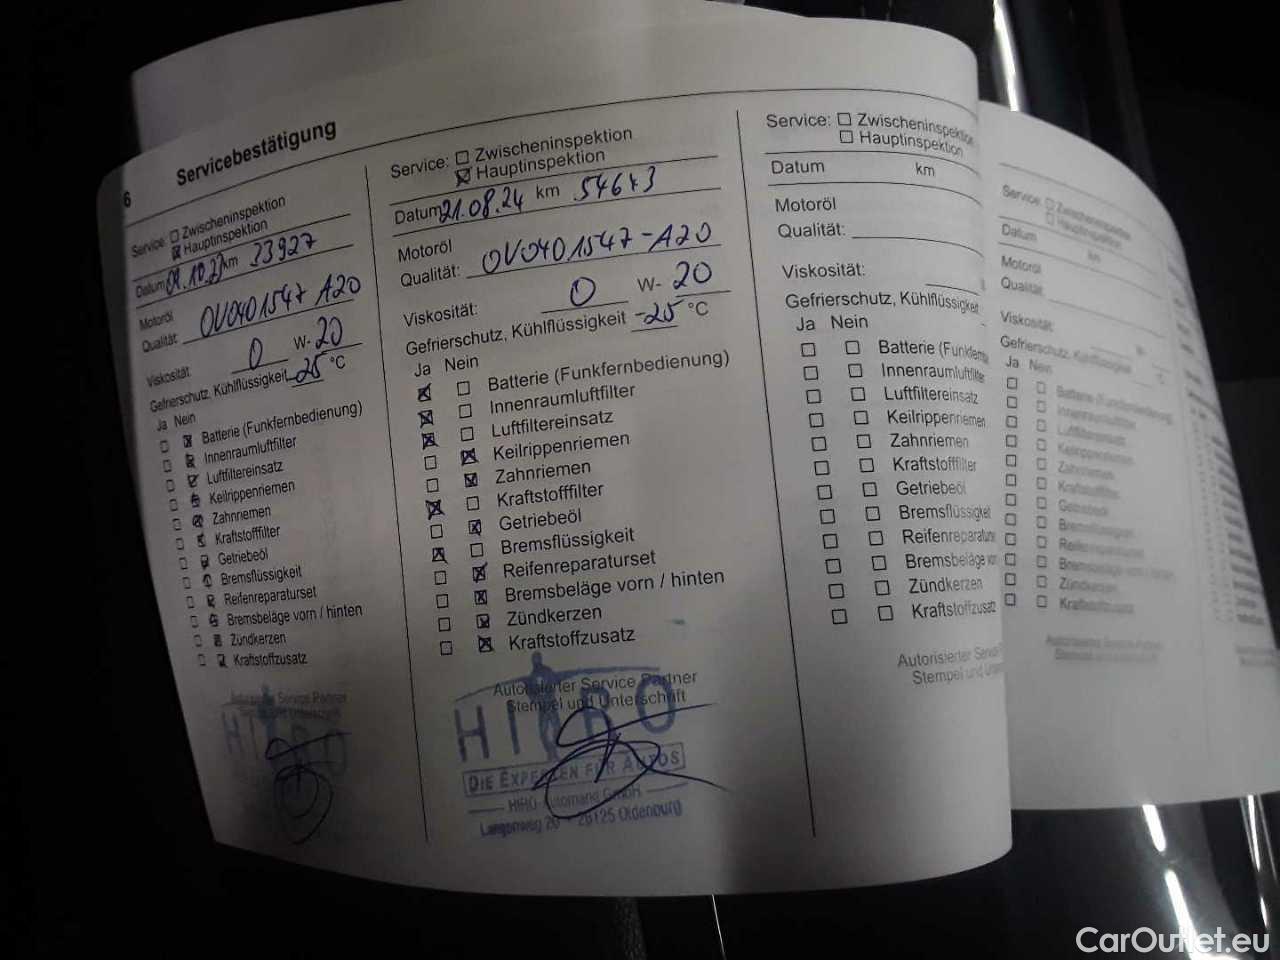 6
Servicebestätigung
Service: Zwischeninspektion
Hauptinspektion
Datum 09.10.23 km 33927
Motoröl
Qualität: OV0401547 A20
Viskosität 0 W- 20
Gefrierschutz, Kühlflüssigkeit -25 °C
Ja Nein
Batterie (Funkfernbedienung)
Innenraumluftfilter
Luftfiltereinsatz
Keilrippenriemen
Zahnriemen
Kraftstofffilter
Getriebeöl
Bremsflüssigkeit
Reifenreparaturset
Bremsbeläge vorn / hinten
Zündkerzen
Kraftstoffzusatz
Autorisierter Service Partner
Stempel und Unterschrift
HIRO
Service: Zwischeninspektion
Hauptinspektion
Datum 21.08.24 km 54673
Motoröl
Qualität: OV0401547-A20
Viskosität: 0 W- 20
Gefrierschutz, Kühlflüssigkeit -25 °C
Ja Nein
Batterie (Funkfernbedienung)
Innenraumluftfilter
Luftfiltereinsatz
Keilrippenriemen
Zahnriemen
Kraftstofffilter
Getriebeöl
Bremsflüssigkeit
Reifenreparaturset
Bremsbeläge vorn / hinten
Zündkerzen
Kraftstoffzusatz
Autorisierter Service Partner
Stempel und Unterschrift
HIRO
DIE EXPERTEN FÜR AUTOS
HIRO Automarkt GmbH
26125 Oldenburg
Service: Zwischeninspektion
Hauptinspektion
Datum km
Motoröl
Qualität:
Viskosität:
Gefrierschutz, Kühlflüssigkeit
Ja Nein
Batterie (Funkfernb
Innenraumluftfilter
Luftfiltereinsatz
Keilrippenriemen
Zahnriemen
Kraftstofffilter
Getriebeöl
Bremsflüssigkeit
Reifenreparaturs
Bremsbeläge vo
Zündkerzen
Kraftstoffzusatz
Autorisierter Servi
Stempel und Unters
Service: Zwischeninspektion
Hauptinspektion
Datum km
Motoröl
Qualität:
Viskosität:
Gefrierschutz, Kühlflüssigkeit °C
Ja Nein
Batterie (Funkfernbedienung)
Innenraumluftfilter
Luftfiltereinsatz
Keilrippenriemen
Zahnriemen
Kraftstofffilter
Getriebeöl
Bremsflüssigkeit
Reifenreparaturset
Bremsbeläge vorn / hinten
Zündkerzen
Kraftstoffzusatz
Autorisierter Service Partner
Stempel und Unterschrift
CarOutlet.eu